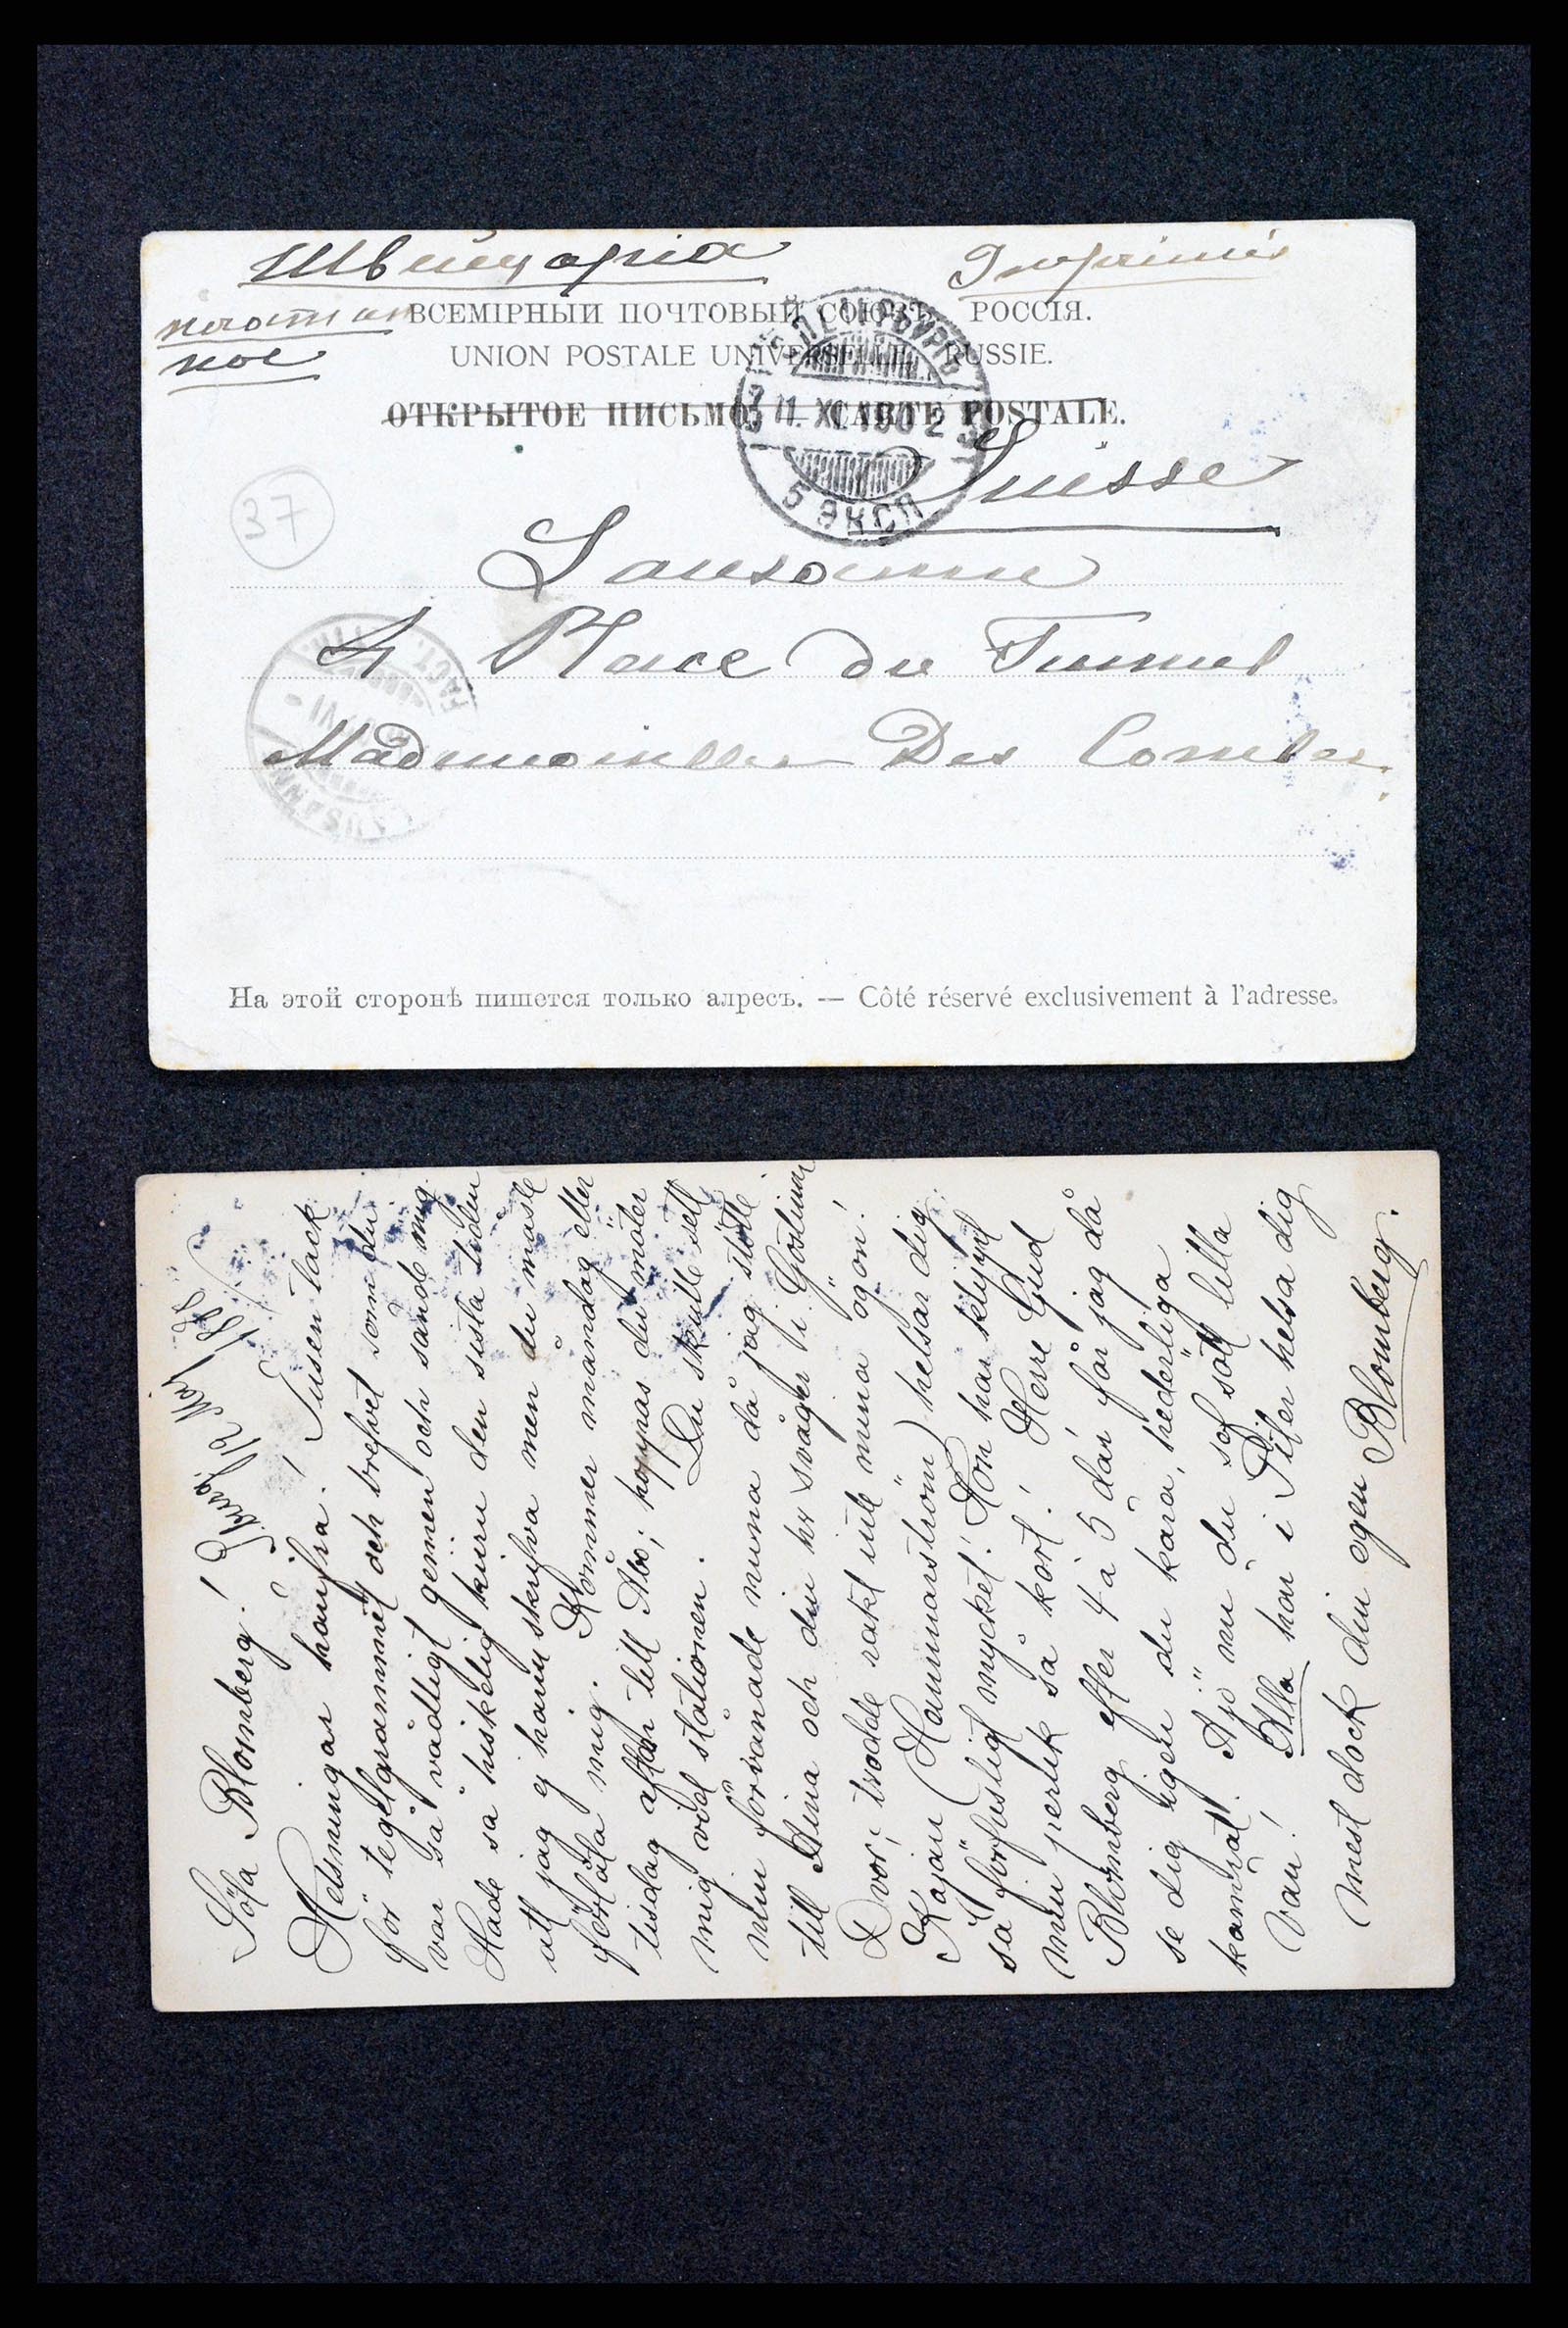 Швейцарія
Imprimés
ВСЕМІРНЫЙ ПОЧТОВЫЙ СОЮЗЪ. РОССІЯ.
UNION POSTALE UNIVERSELLE. RUSSIE.
ОТКРЫТОЕ ПИСЬМО. — CARTE POSTALE.
11. XI. 1902
5 ЭКСП.
Suisse
37
Lausanne
4 Place du Tunnel
Mademoiselle Des Combes.
На этой сторонѣ пишется только адресъ. — Côté réservé exclusivement à l'adresse.
Söta Blomberg! 9/12 Maj 188
Helsningar hanifra. Tusen tack
för telegrammet och brefvet som du
var så vådligt gemen och sände mig.
Hade så hiskelig den sista tiden
att jag ej hann skrifva men du måste
förlåta mig. Kommer måndag eller
tisdag afton till Åbo; hoppas du möter
mig vid stationen. Du skulle sett
min förvånade nuna då jag stötte
till Aina och din hr svåger i Gostinnr
Dvor; trodde rakt inte mina ögon!
Kajan (Hammarström) helsar dig
så förfusligt mycket! Hon har
min så kort! Herre Gud
Blomberg efter 4 à 5 dar får jag då
se dig igen du kära, hederliga
kamrat. Ajö nu du sof sött lilla
van! Alla han i Piter helsa dig
mest dock din egen Blomberg.